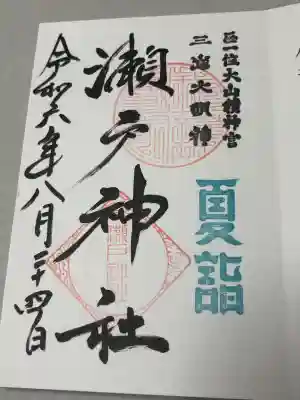 正一位大山積神宮
三島大明神
夏詣
瀬戸神社
令和六年八月二十四日